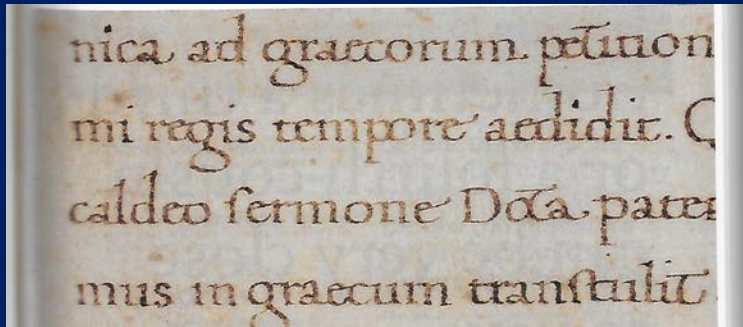 nica ad graecorum petition
mi regis tempore aedidit. Q
caldeo ſermone Docta pater
mus in graecum tranſtulit